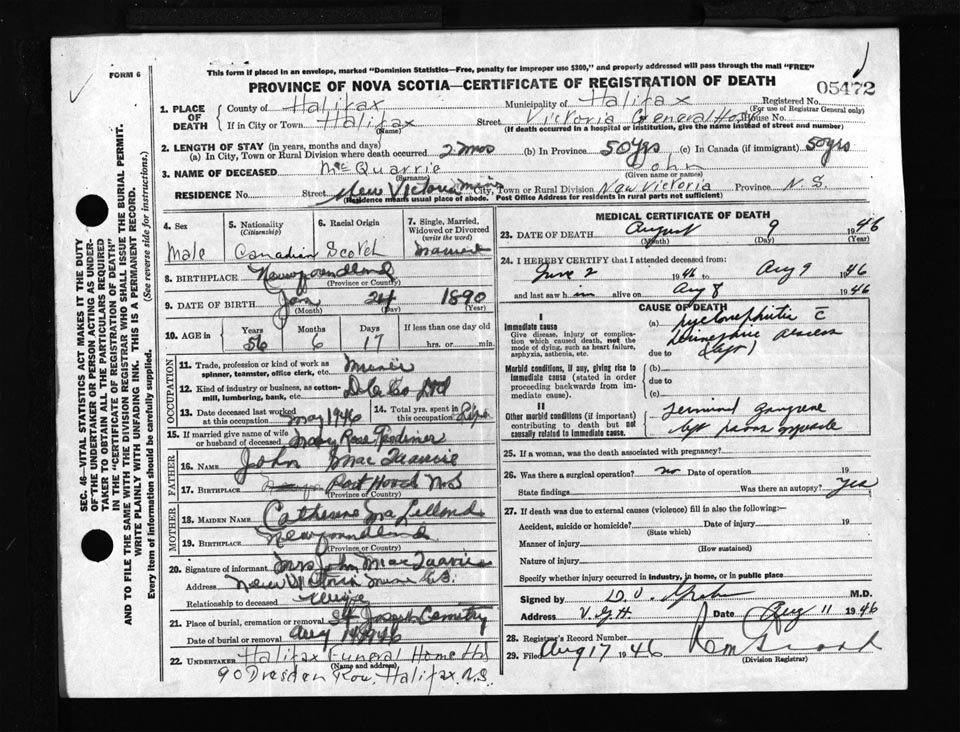 FORM 6
This form if placed in an envelope, marked "Dominion Statistics—Free, penalty for improper use $300," and properly addressed will pass through the mail "FREE"
PROVINCE OF NOVA SCOTIA—CERTIFICATE OF REGISTRATION OF DEATH
05472
SEC. 46—VITAL STATISTICS ACT MAKES IT THE DUTY
OF THE UNDERTAKER OR PERSON ACTING AS UNDER-
TAKER TO OBTAIN ALL THE PARTICULARS REQUIRED
IN THE "CERTIFICATE OF REGISTRATION OF DEATH"
AND TO FILE THE SAME WITH THE DIVISION REGISTRAR WHO SHALL ISSUE THE BURIAL PERMIT.
WRITE PLAINLY WITH UNFADING INK. THIS IS A PERMANENT RECORD.
Every item of information should be carefully supplied. (See reverse side for instructions.)
1. PLACE OF DEATH
County of Halifax Municipality of Halifax Registered No.
(For use of Registrar General only)
If in City or Town Halifax Street Victoria General Hosp House No.
(Name) (If death occurred in a hospital or institution, give the name instead of street and number)
2. LENGTH OF STAY (in years, months and days)
(a) In City, Town or Rural Division where death occurred 2 mos (b) In Province 50 yrs (c) In Canada (if immigrant) 50 yrs
3. NAME OF DECEASED MacQuarrie John
(Surname) (Given name or names)
RESIDENCE No. Street New Victoria City, Town or Rural Division New Victoria Province N.S.
(Residence means usual place of abode. Post Office Address for residents in rural parts not sufficient)
4. Sex
Male
5. Nationality
(Citizenship)
Canadian
6. Racial Origin
Scotch
7. Single, Married,
Widowed or Divorced
(write the word)
Married
8. BIRTHPLACE Newfoundland
(Province or Country)
9. DATE OF BIRTH Jan 24 1890
(Month) (Day) (Year)
10. AGE in Years Months Days If less than one day
56 6 17 hrs. or min.
OCCUPATION
11. Trade, profession or kind of work as
spinner, teamster, office clerk, etc. Miner
12. Kind of industry or business, as cotton-
mill, lumbering, bank, etc.
13. Date deceased last worked
at this occupation May 1946
14. Total yrs. spent in
this occupation
15. If married give name of wife
or husband of deceased Mary Rose
FATHER
16. NAME John MacQuarrie
17. BIRTHPLACE Port Hood N.S
(Province or Country)
MOTHER
18. MAIDEN NAME Catherine
19. BIRTHPLACE Newfoundland
(Province or Country)
20. Signature of informant Mrs John MacQuarrie
Address New Victoria
Relationship to deceased Wife
21. Place of burial, cremation or removal St Joseph Cemetry
Date of burial or removal Aug 1946
22. UNDERTAKER Halifax Funeral Home
(Name and address)
90 Dresden Row, Halifax, N.S.
MEDICAL CERTIFICATE OF DEATH
23. DATE OF DEATH August 9 1946
(Month) (Day) (Year)
24. I HEREBY CERTIFY that I attended deceased from:
June 2 1946 to Aug 9 1946
and last saw him alive on Aug 8 1946
CAUSE OF DEATH
I
Immediate cause
Give disease, injury or complica-
tion which caused death, not the
mode of dying, such as heart failure,
asphyxia, asthenia, etc.
(a)
due to
Morbid conditions, if any, giving rise to
immediate cause (stated in order
proceeding backwards from im-
mediate cause).
(b)
due to
(c)
II
Other morbid conditions (if important)
contributing to death but not
causally related to immediate cause.
Terminal Gangrene
left
25. If a woman, was the death associated with pregnancy?
26. Was there a surgical operation? no Date of operation 19
State findings Was there an autopsy? Yes
27. If death was due to external causes (violence) fill in also the following:
Accident, suicide or homicide? Date of injury 19
(State which)
Manner of injury
(How sustained)
Nature of injury
Specify whether injury occurred in industry, in home, or in public place
Signed by M.D.
Address V.G.H. Date Aug 11 1946
28. Registrar's Record Number
29. Filed Aug 17 1946
(Division Registrar)